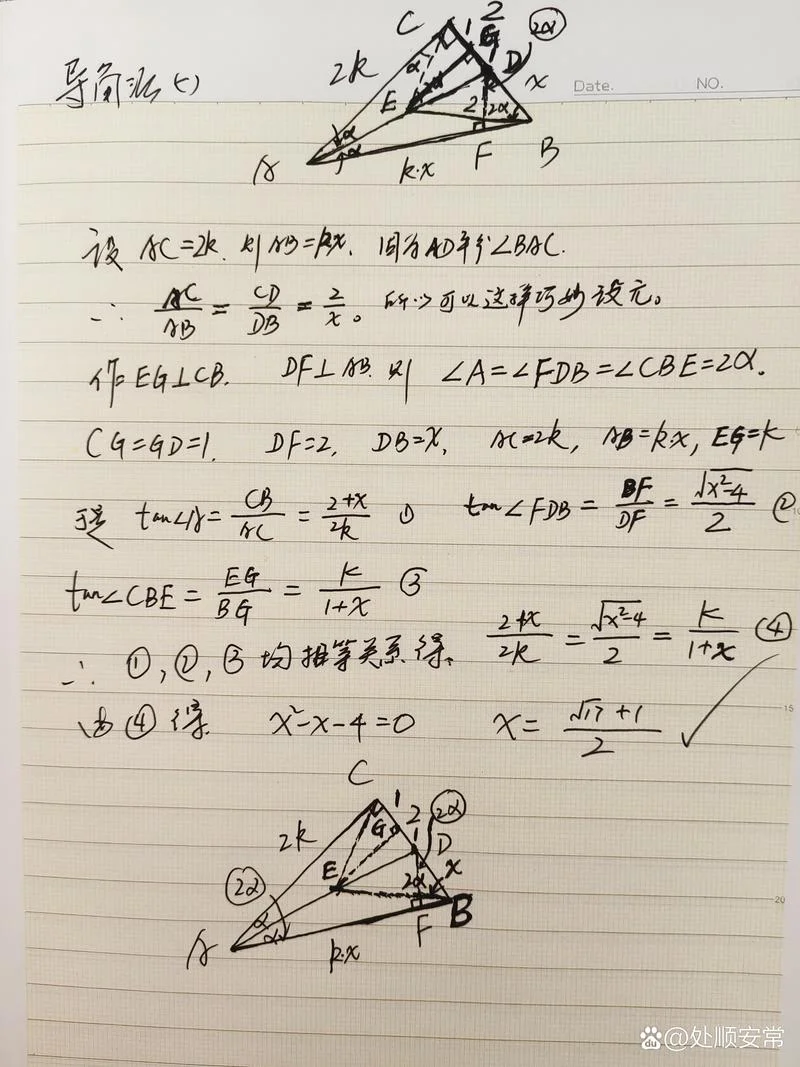 C 2
1 G
2α
导角法(七)
2k
α
D
x
Date. NO.
E
2 2α
α
α
A
k·x
F
B
设 AC=2k. 则 AB=kx, 因为AD平分∠BAC.
∴ AC/AB = CD/DB = 2/x。所以可以这样巧妙设元。
作EG⊥CB. DF⊥AB. 则 ∠A=∠FDB=∠CBE=2α.
CG=GD=1, DF=2, DB=x, AC=2k, AB=k·x, EG=k
于是 tan∠A = CB/AC = (2+x)/2k ① tan∠FDB = BF/DF = √(x²-4)/2 ②
tan∠CBE = EG/BG = k/(1+x) ③
∴ ①,②,③均相等关系得, (2+x)/2k = √(x²-4)/2 = k/(1+x) ④
由④得 x²-x-4=0 x = (√17+1)/2 ✓
15
C
1
G
2
2α
1
D
2k
E
2α
x
2α
20
α
α
B
F
A
k·x
Bai du @处顺安常